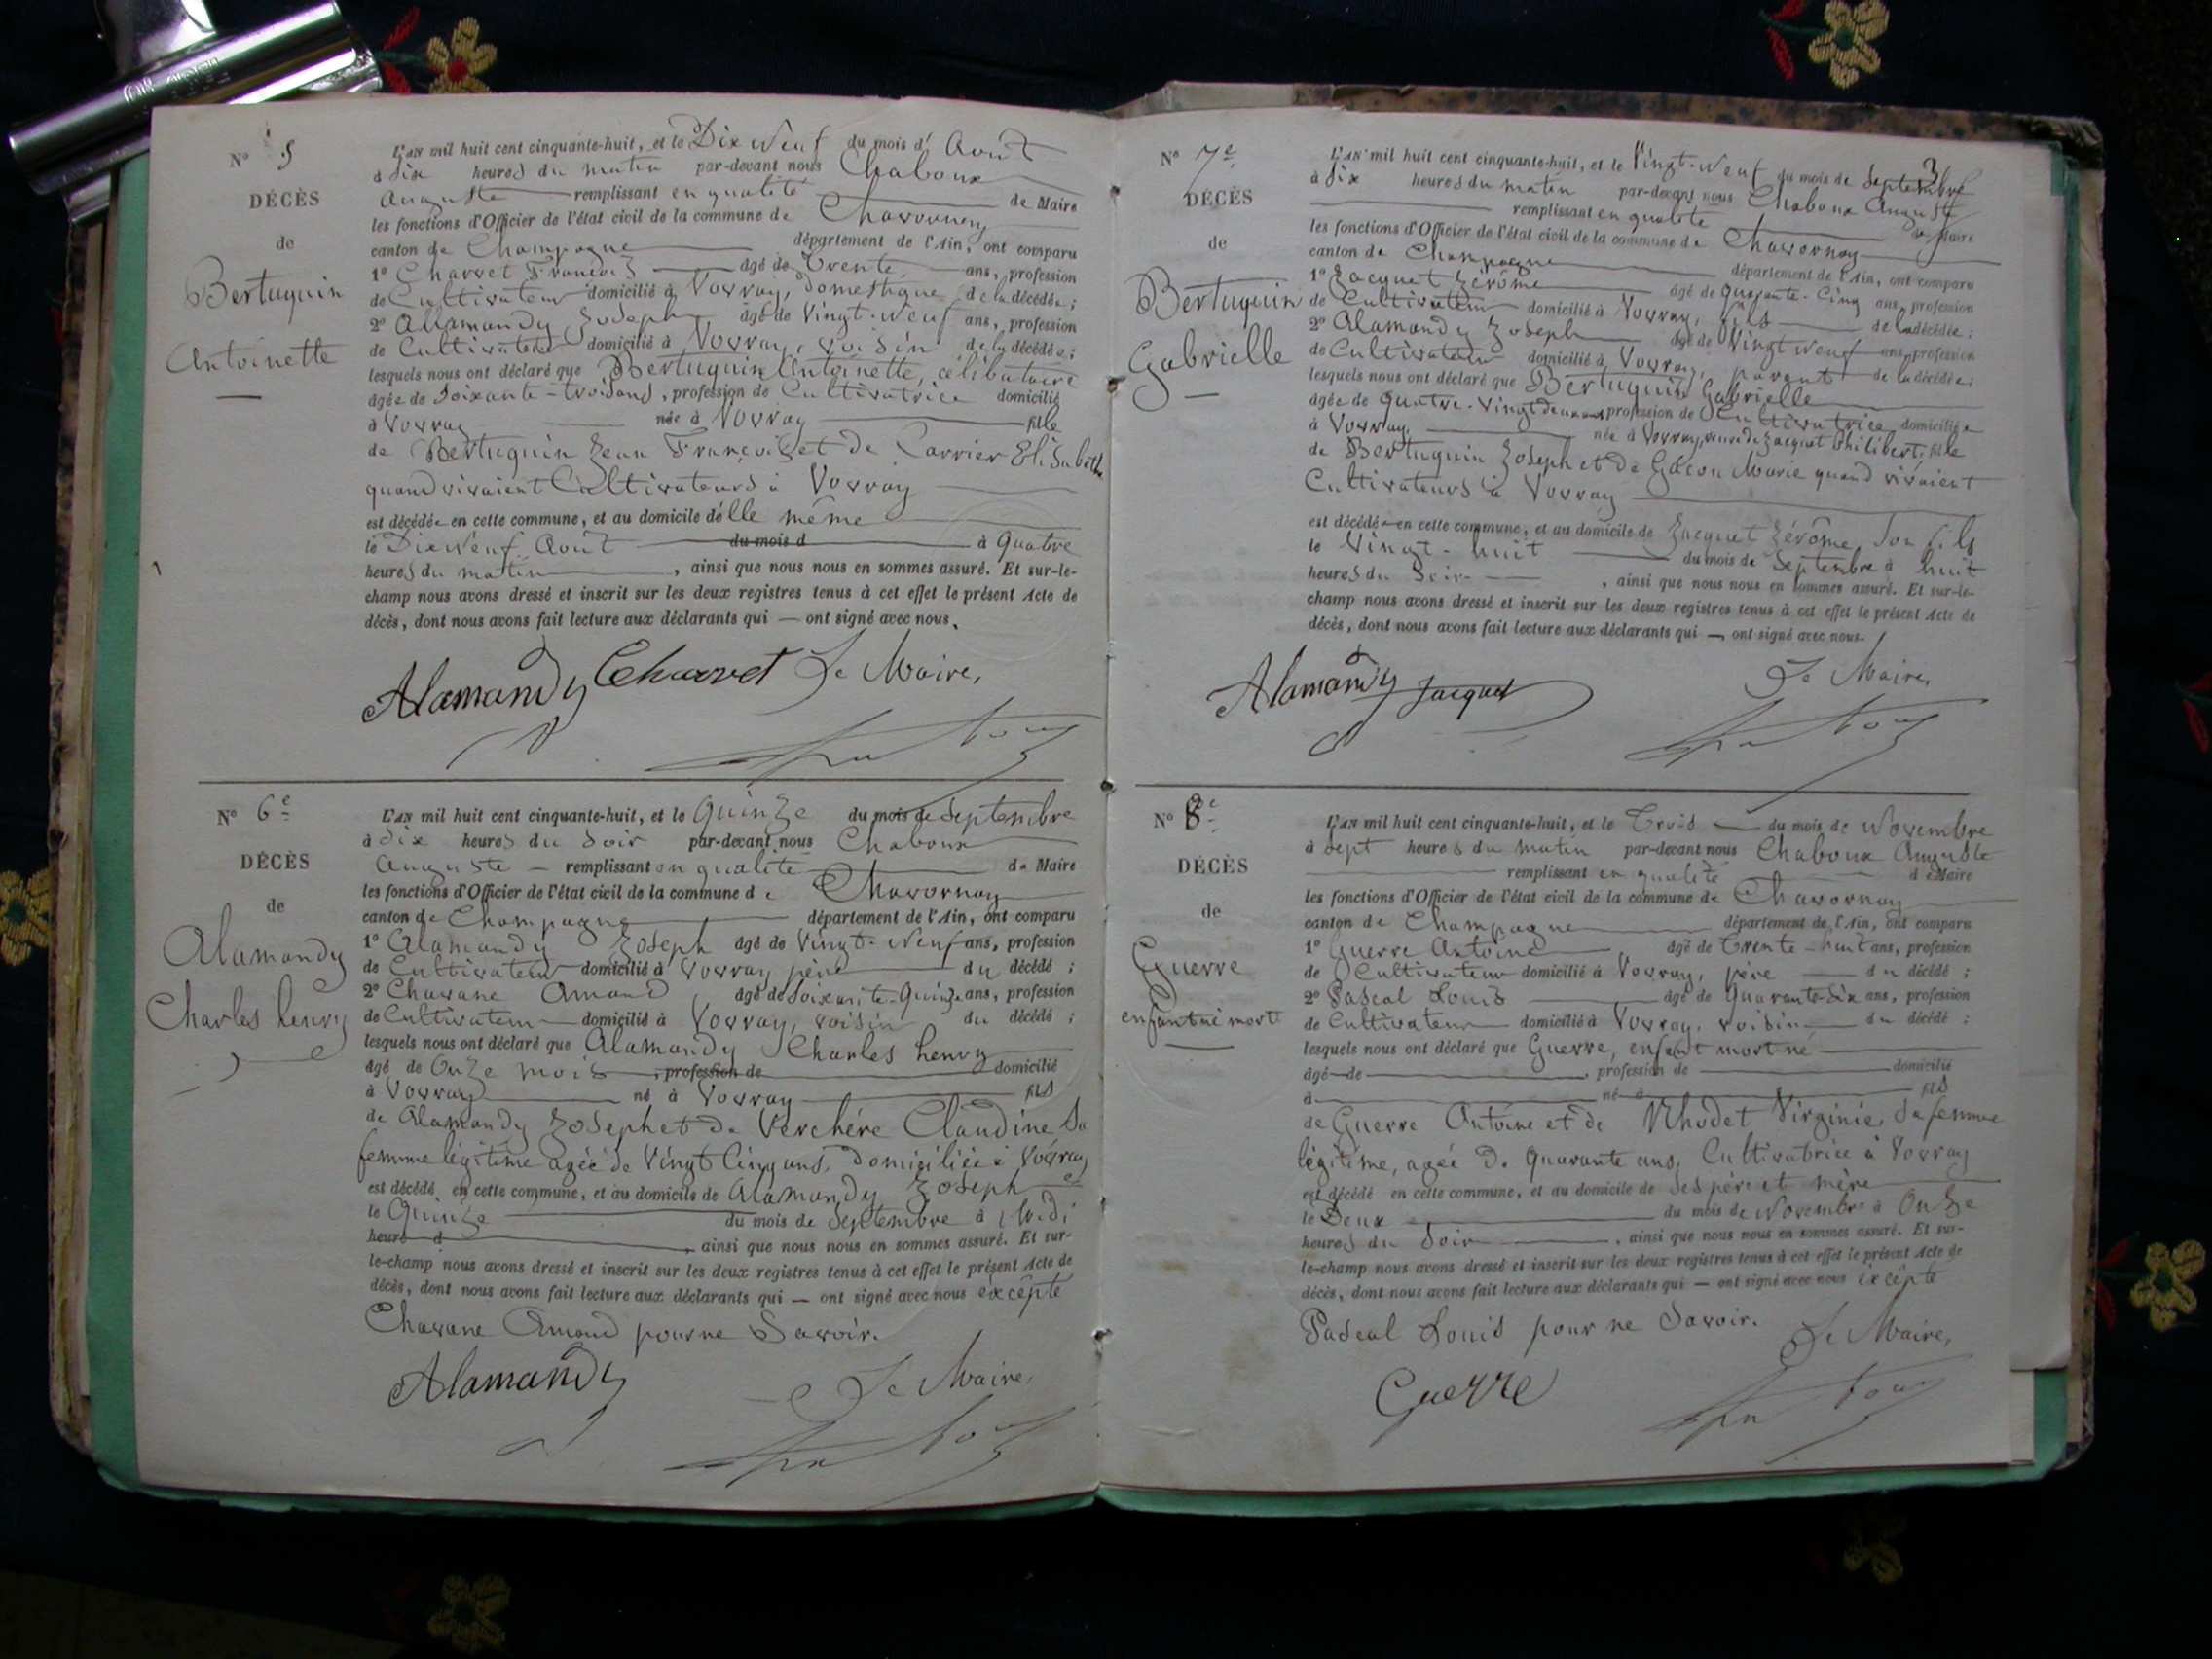 N° 5
DÉCÈS
de
Bertuquin
Antoinette
L'AN mil huit cent cinquante-huit, et le Dix Neuf du mois d' Août
à dix heures du matin par-devant nous Chaboux
Auguste remplissant en qualité de Maire
les fonctions d'Officier de l'état civil de la commune de Chavornay
canton de Champagne département de l'Ain, ont comparu
1° Charvet François âgé de Trente ans, profession
de Cultivateur domicilié à Vovray, domestique de la décédée ;
2° Allamandy Joseph âgé de Vingt-Neuf ans, profession
de Cultivateur domicilié à Vovray, voisin de la décédée ;
lesquels nous ont déclaré que Bertuquin Antoinette, célibataire
âgée de Soixante-trois ans, profession de Cultivatrice domicilié
à Vovray née à Vovray fille
de Bertuquin Jean François et de Carrier Elisabeth
quand vivaient Cultivateurs à Vovray
est décédée en cette commune, et au domicile d'elle même
le Dix Neuf Août du mois d à Quatre
heures du matin, ainsi que nous nous en sommes assuré. Et sur-le-
champ nous avons dressé et inscrit sur les deux registres tenus à cet effet le présent Acte de
décès, dont nous avons fait lecture aux déclarants qui — ont signé avec nous.
Alamandy Charvet Le Maire,
N° 6e
DÉCÈS
de
Alamandy
Charles henry
L'AN mil huit cent cinquante-huit, et le Quinze du mois de Septembre
à dix heures du Soir par-devant nous Chaboux
Auguste — remplissant en qualité de Maire
les fonctions d'Officier de l'état civil de la commune de Chavornay
canton de Champagne département de l'Ain, ont comparu
1° Alamandy Joseph âgé de Vingt-Neuf ans, profession
de Cultivateur domicilié à Vovray père du décédé ;
2° Chavane Amand âgé de Soixante-Quinze ans, profession
de Cultivateur domicilié à Vovray, voisin du décédé ;
lesquels nous ont déclaré que Alamandy Charles henry
âgé de Onze mois, profession de domicilié
à Vovray né à Vovray fils
de Alamandy Joseph et de Verchère Claudine Sa
femme légitime agée de Vingt Cinq ans, domiciliée à Vovray
est décédé en cette commune, et au domicile de Alamandy Joseph
le Quinze du mois de Septembre à Midi
heure d, ainsi que nous nous en sommes assuré. Et sur-
le-champ nous avons dressé et inscrit sur les deux registres tenus à cet effet le présent Acte de
décès, dont nous avons fait lecture aux déclarants qui — ont signé avec nous excepte
Chavane Amand pour ne Savoir.
Alamandy Le Maire,
3
N° 7e
DÉCÈS
de
Bertuquin
Gabrielle
L'AN mil huit cent cinquante-huit, et le Vingt-Neuf du mois de Septembre
à dix heures du matin par-devant nous Chaboux Auguste
remplissant en qualité de Maire
les fonctions d'Officier de l'état civil de la commune de Chavornay
canton de Champagne département de l'Ain, ont comparu
1° Jacquet Jérôme âgé de Quarante-Cinq ans, profession
de Cultivateur domicilié à Vovray, fils de la décédée ;
2° Alamandy Joseph âgé de Vingt Neuf ans, profession
de Cultivateur domicilié à Vovray, parent de la décédée ;
lesquels nous ont déclaré que Bertuquin Gabrielle
âgée de Quatre-Vingt deux ans profession de Cultivatrice domiciliée
à Vovray, née à Vovray, veuve de Jacquet Philibert, fille
de Bertuquin Joseph et de Gacon Marie quand vivaient
Cultivateurs à Vovray
est décédée en cette commune, et au domicile de Jacquet Jérôme, Son fils
le Vingt-huit du mois de Septembre à huit
heures du Soir, ainsi que nous nous en sommes assuré. Et sur-le-
champ nous avons dressé et inscrit sur les deux registres tenus à cet effet le présent Acte de
décès, dont nous avons fait lecture aux déclarants qui — ont signé avec nous.
Alamandy Jacquet Le Maire,
N° 8e
DÉCÈS
de
Guerre
enfant né mort
L'AN mil huit cent cinquante-huit, et le Trois du mois de Novembre
à Sept heures du matin par-devant nous Chaboux Auguste
remplissant en qualité de Maire
les fonctions d'Officier de l'état civil de la commune de Chavornay
canton de Champagne département de l'Ain, ont comparu
1° Guerre Antoine âgé de Trente-huit ans, profession
de Cultivateur domicilié à Vovray, père du décédé ;
2° Pascal Louis âgé de Quarante-Six ans, profession
de Cultivateur domicilié à Vovray, voisin du décédé ;
lesquels nous ont déclaré que Guerre, enfant mort né
âgé de, profession de domicilié
à né à fils
de Guerre Antoine et de Rhodet Virginie, Sa femme
légitime, agée de Quarante ans, Cultivatrice à Vovray
est décédé en cette commune, et au domicile de Ses père et mère
le Deux du mois de Novembre à Onze
heures du Soir, ainsi que nous nous en sommes assuré. Et sur-
le-champ nous avons dressé et inscrit sur les deux registres tenus à cet effet le présent Acte de
décès, dont nous avons fait lecture aux déclarants qui — ont signé avec nous excepte
Pascal Louis pour ne Savoir.
Le Maire,
Guerre